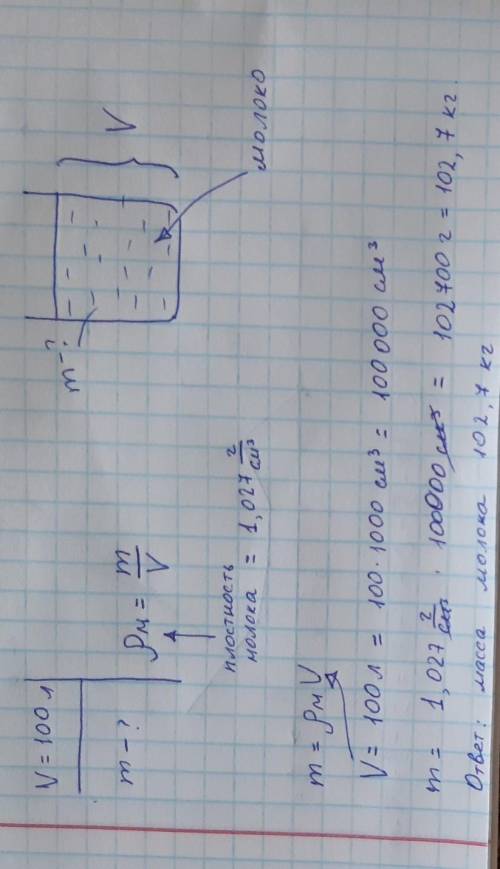 V = 100 л
m - ?
ρм = m/V
плотность
молока = 1,027 г/см³
m - ?
V
молоко
m = ρм V
V = 100 л = 100 · 1000 см³ = 100 000 см³
m = 1,027 г/см³ · 100000 см³ = 102700 г = 102,7 кг.
Ответ: масса молока 102,7 кг